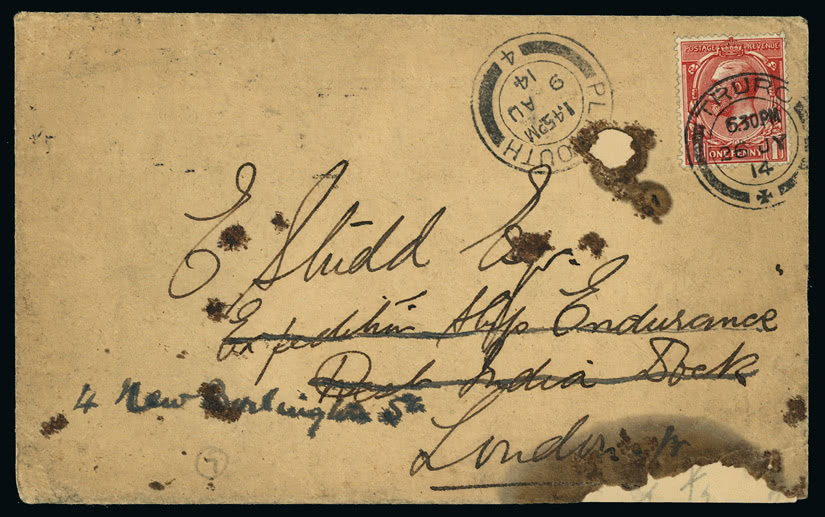 POSTAGE REVENUE
ONE PENNY
TRURO
6.30PM
JY
14
PL OUTH
4
1.45PM
9 AU
14
E Studd Esqr.
Expedition Ship Endurance
West India Dock
4 New Burlington St
London
7